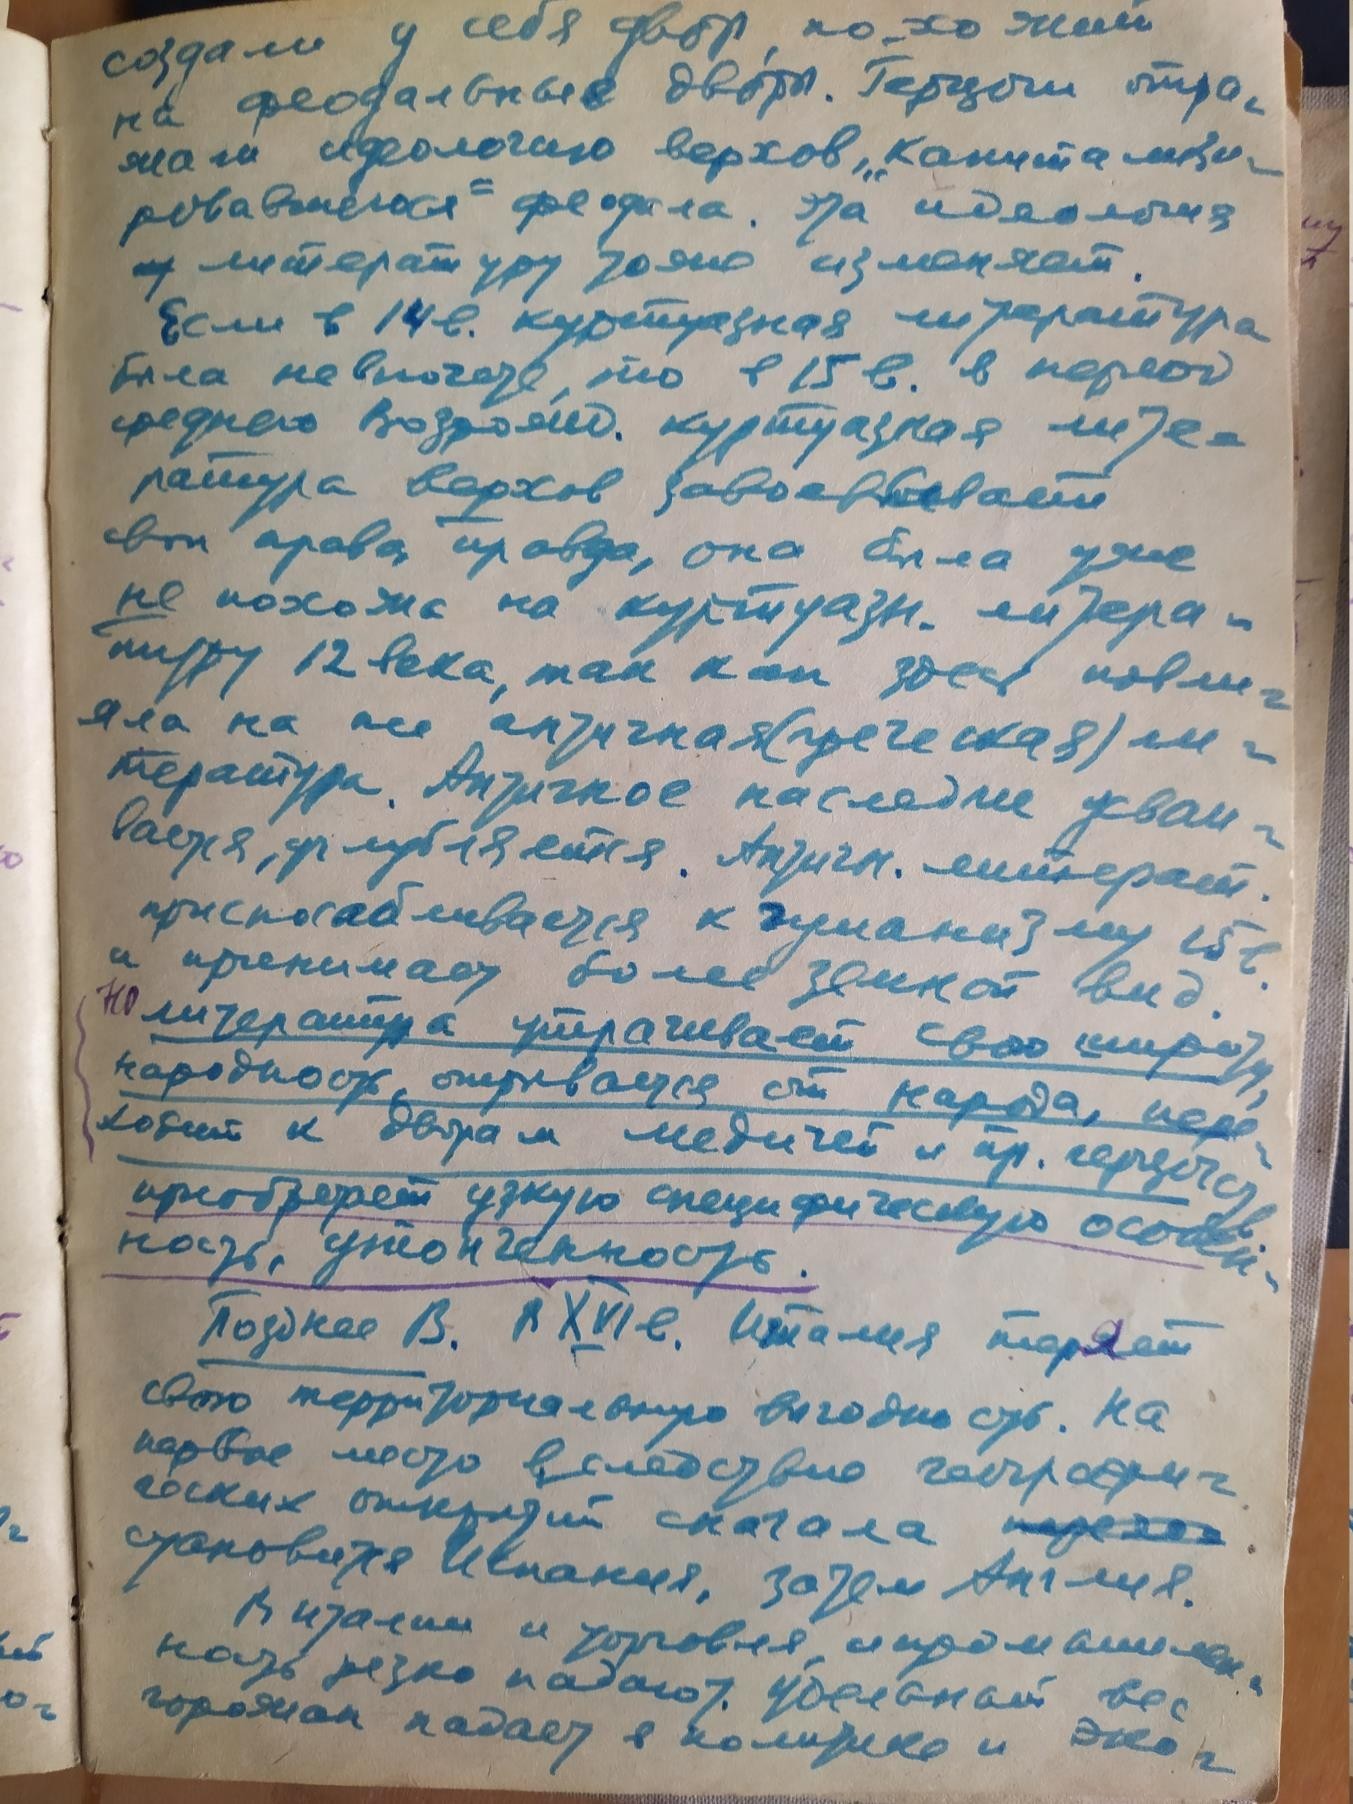 создали у себя двор, похожий
на феодальные дворы. Герцоги отра-
жали идеологию верхов, „капитализи-
ровавшегося" феодала. Эта идеология
и литературу тоже изменяет.
Если в 14 в. куртуазная литература
была не в почете, то в 15 в. в период
среднего Возрожд. куртуазная лите-
ратура верхов завоевывает
свои права, правда, она была уже
не похожа на куртуазн. литера-
туру 12 века, так как здесь повли-
яла на нее античная (греческая) ли-
тература. Античное наследие усваи-
вается, углубляется. Античн. литерат.
приспосабливается к гуманизму 15 в.
и принимает более земной вид.
Но литература утрачивает свою широту,
народность, отрывается от народа, пере-
ходит к дворам Медичей и пр. герцогств
приобретает узкую специфическую особен-
ность, утонченность.
Позднее В. В XVI в. Италия теряет
свою территориальную выгодность. На
первое место вследствие географи-
ческих открытий сначала
становится Испания, затем Англия.
В Италии и торговля, и промышлен-
ность резко падают. Удельный вес
горожан падает в политике и эко-